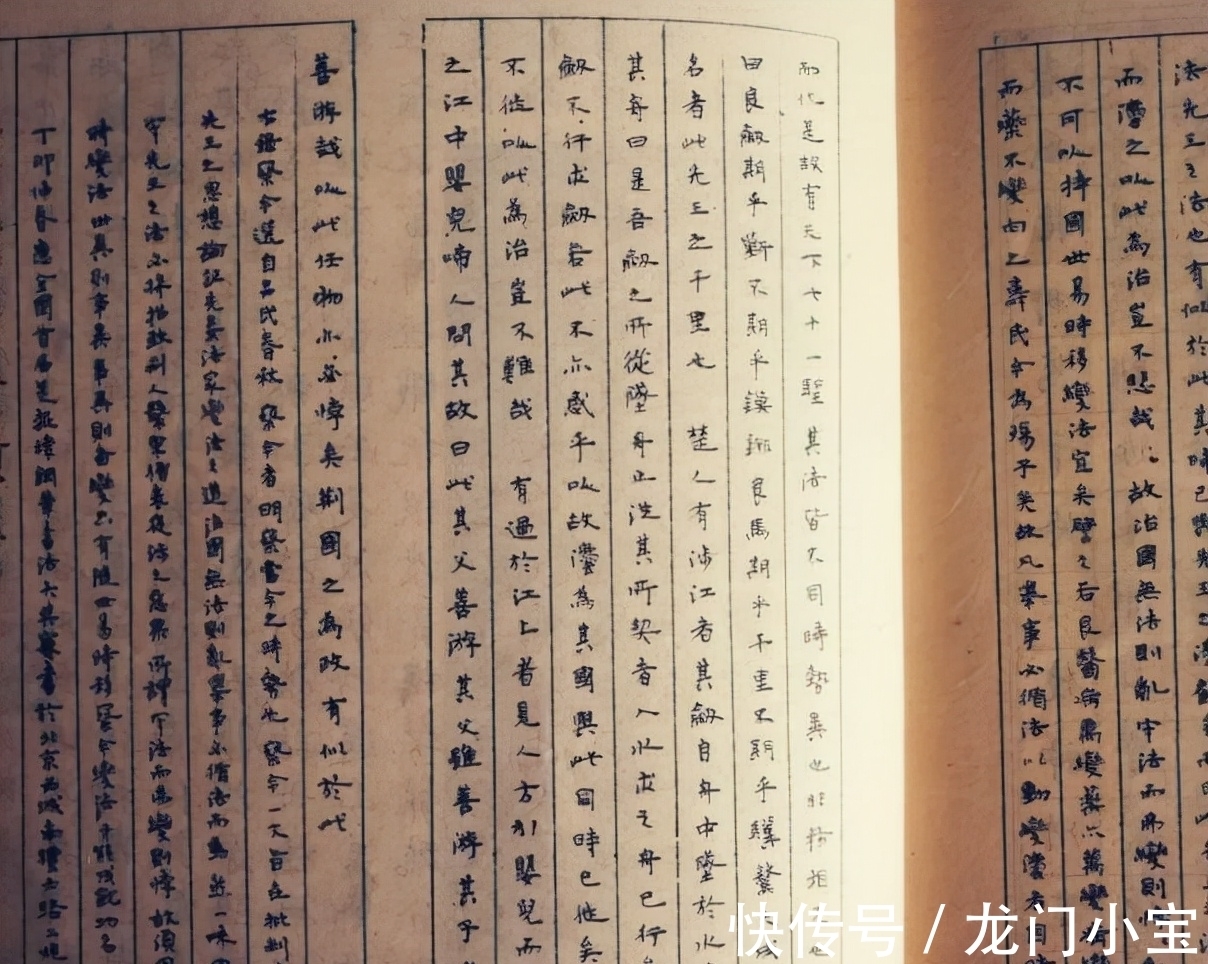 法先王之法也有似於此其時已與先王之法虧矣而曰此
而灋之以此為治豈不悲哉故治國無法則亂守法而弗變則悖
不可以持國世易時移變法宜矣譬之若良醫病萬變藥亦萬變病
而藥不變向之壽民今為殤子矣故凡舉事必循法以動變灋者因時
而化是故有天下七十一聖其法皆不同時勢異也
曰良劔期乎斷不期乎鏌鋣良馬期乎千里不期乎驥驁
名者此先王之千里也 楚人有涉江者其劔自舟中墜於水
其舟曰是吾劔之所從墜舟止從其所契者入水求之舟已行
劔不行求劔若此不亦惑乎以故灋為其國與此同時已徙矣
不徙以此為治豈不難哉 有過於江上者見人方引嬰兒而
之江中嬰兒啼人問其故曰此其父善游其父雖善游其子
善游哉以此任物亦必悖矣荆國之為政有似於此
右錄察今選自呂氏春秋察今者明察當今之時勢也察今一文旨在批判
先王之思想論証先秦法家變法之道治國無法則亂舉事必循法而動並一味
守先王之法必將招致所謂守法而弗變則悖故須因
時變法世異則事異事異則備變只有隨世易時移察今變法才能成就功名
丁卯仲春應全國首屆鋼筆書法大賽書於北京西城
快传号/龙门小宝